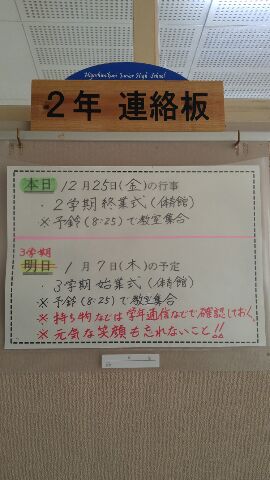 Higashiizumi Junior High School
2年 連絡板
本日 12月25日(金)の行事
・2学期 終業式 (体育館)
※予鈴(8:25)で教室集合
3学期
明日 1月7日(木)の予定
・3学期 始業式 (体育館)
※予鈴(8:25)で教室集合
※持ち物などは学年通信などで確認しておく。
※元気な笑顔も忘れないこと!!